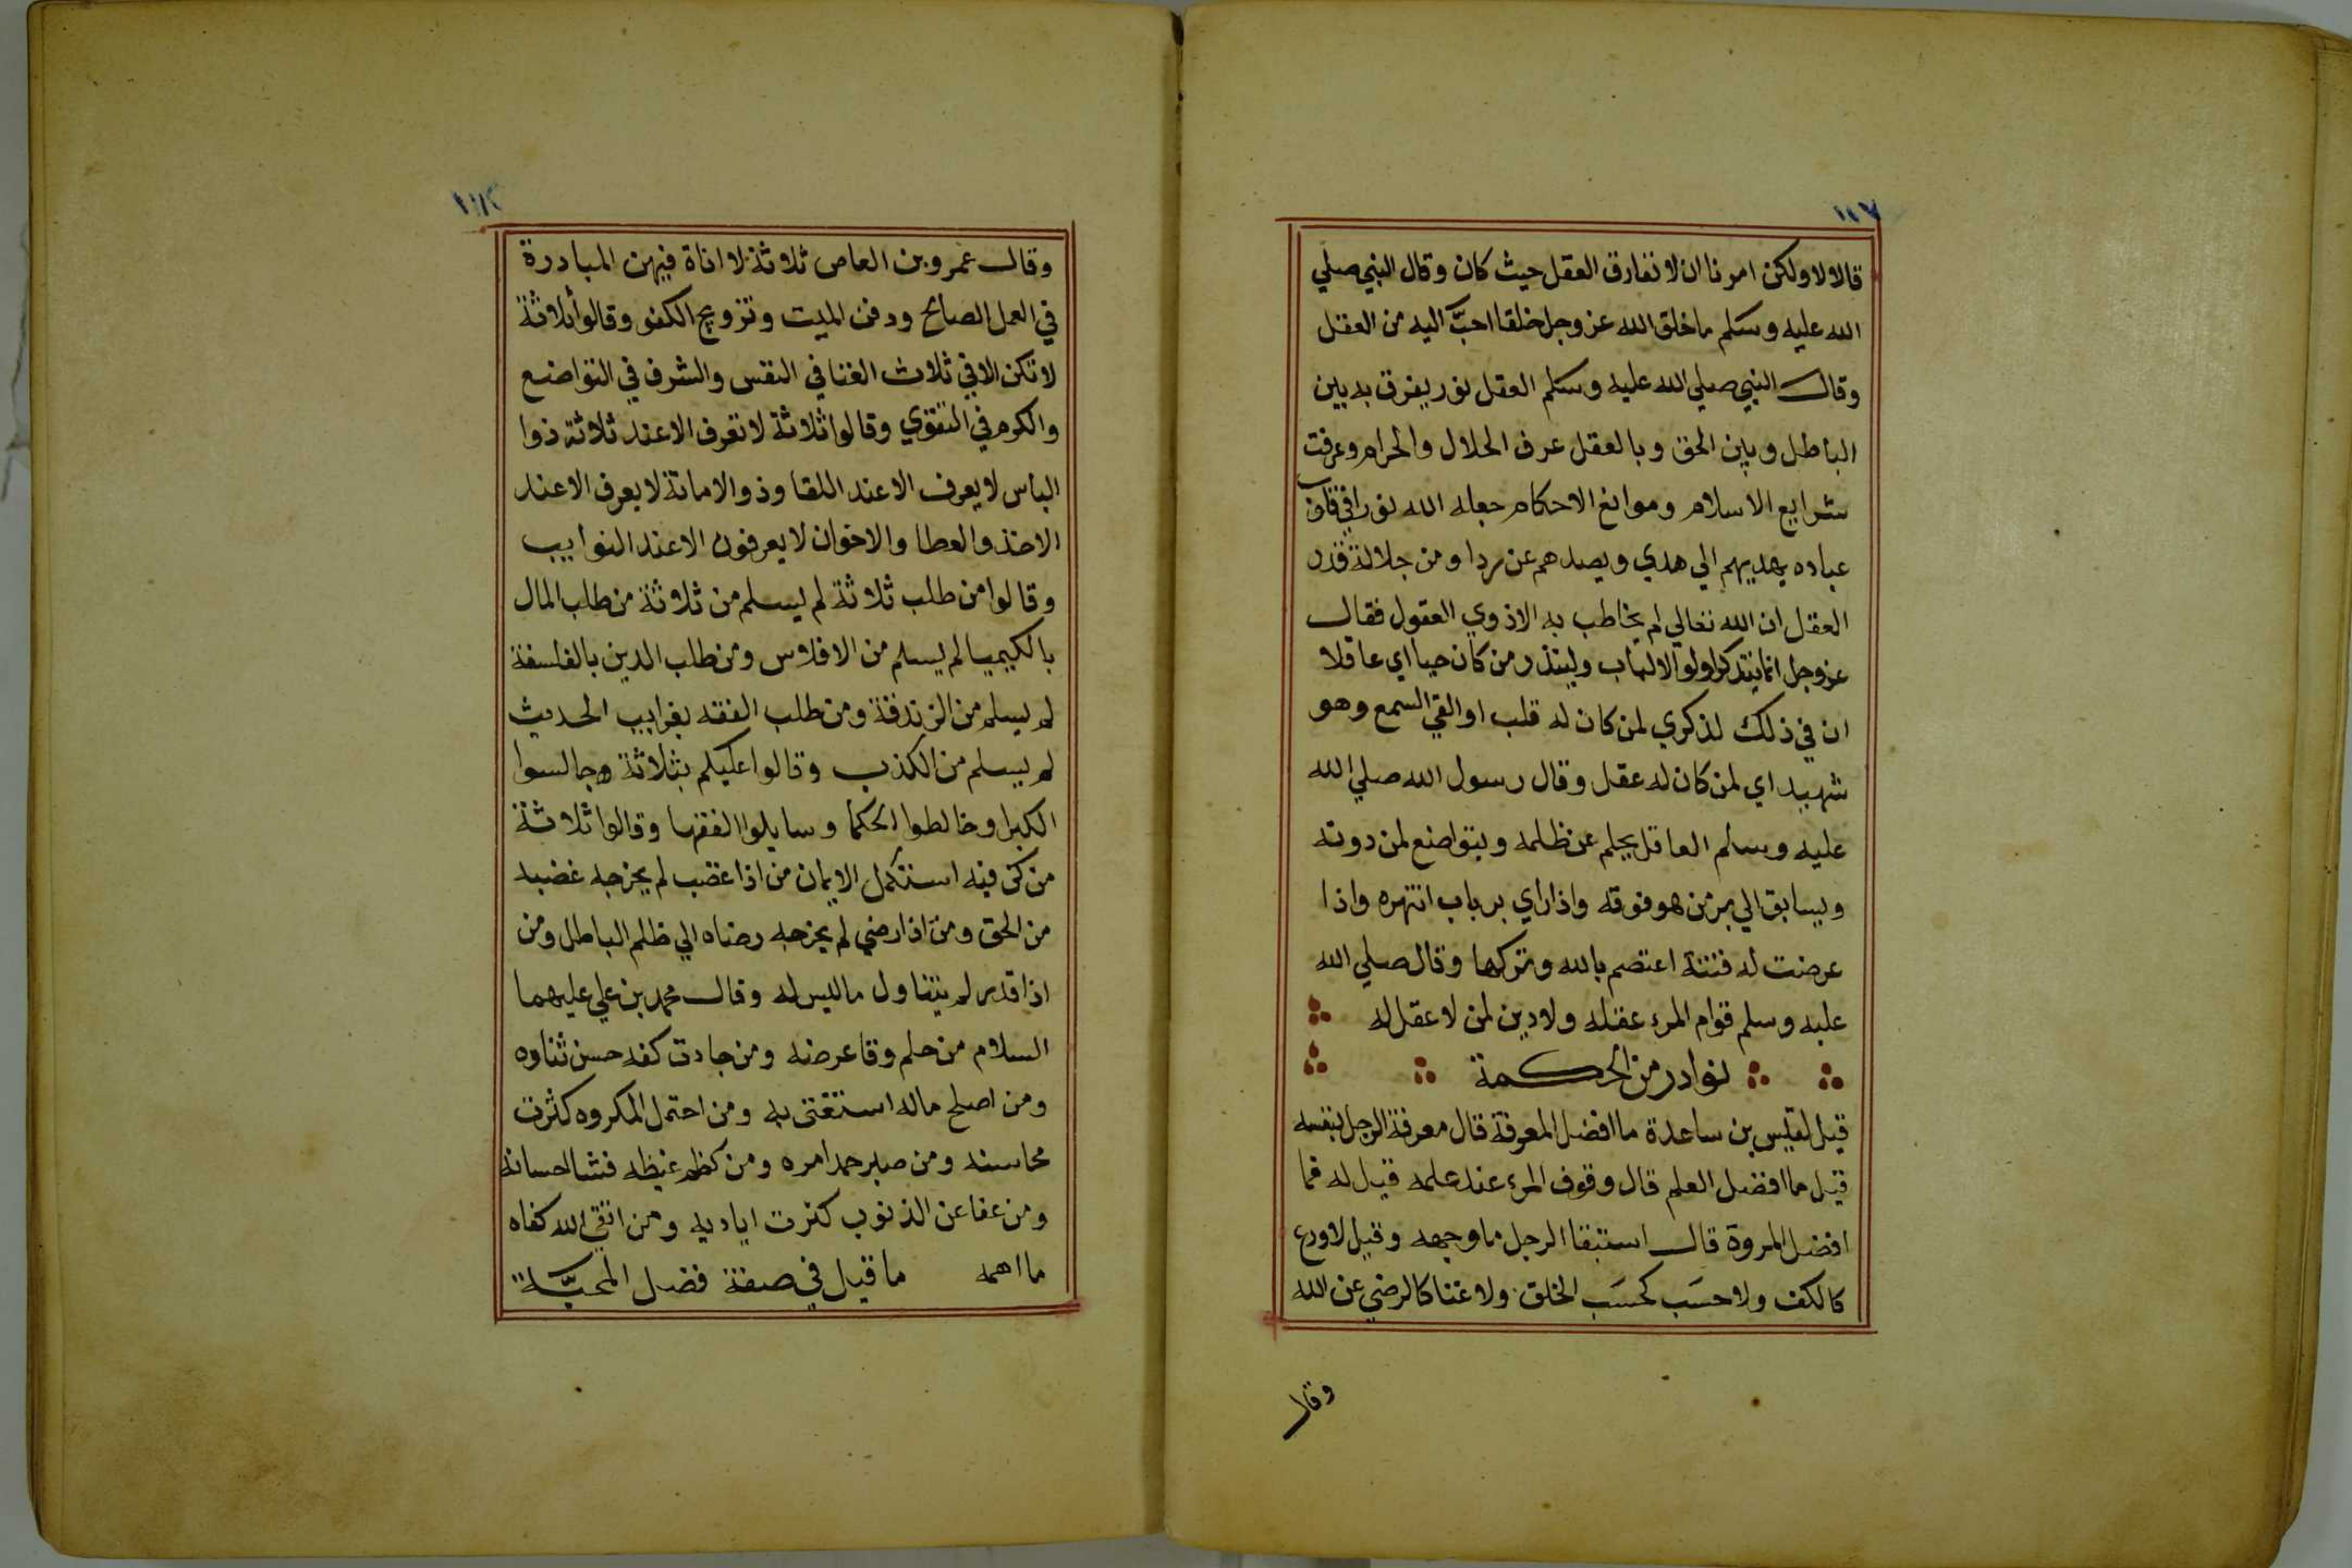 ١١٧
قالا لا ولكن امرنا ان لا نفارق العقل حيث كان وقال النبي صلي
الله عليه وسلم ما خلق الله عز وجل خلقا احبَّ اليه من العقل
وقال النبي صلي الله عليه وسلم العقل نور يفرق به بين
الباطل وبين الحق وبالعقل عرف الحلال والحرام وعرفت
شرايع الاسلام ومواقع الاحكام جعله الله نورا في قلوب
عباده يهديهم الي هدي ويصدهم عن ردا ومن جلالة قدر
العقل ان الله تعالي لم يخاطب به الا ذوي العقول فقال
عز وجل انما يتذكر اولوا الالباب ولينذر من كان حيا اي عاقلا
ان في ذلك لذكري لمن كان له قلب او القي السمع وهو
شهيد اي لمن كان له عقل وقال رسول الله صلي الله
عليه وسلم العاقل يحلم عن ظلمه ويتواضع لمن دونه
ويسابق الي بر من هو فوقه واذا راي بر باب انتهره واذا
عرضت له فتنة اعتصم بالله وتركها وقال صلي الله
عليه وسلم قوام المرء عقله ولا دين لمن لا عقل له
نوادر من الحكمة
قيل لقيس بن ساعدة ما افضل المعرفة قال معرفة الرجل بنفسه
قيل ما افضل العلم قال وقوف المرء عند علمه قيل له فما
افضل المروة قال استبقا الرجل ما وجهه وقيل لا ورع
كالكف ولا حسَب كحسَب الخلق ولا غنا كالرضي عن الله
وقال
وقال عمرو بن العاص ثلاثة لا اناة فيهن المبادرة
في العمل الصالح ودفن الميت وتزويج الكفو وقالوا ثلاثة
لا تكن الا في ثلاث الغنا في النفس والشرف في التواضع
والكرم في التقوي وقالوا ثلاثة لا تعرف الا عند ثلاثة ذوا
الباس لا يعرف الا عند اللقا وذو الامانة لا يعرف الا عند
الاخذ والعطا والاخوان لا يعرفون الا عند النوايب
وقالوا من طلب ثلاثة لم يسلم من ثلاثة من طلب المال
بالكيميا لم يسلم من الافلاس ومن طلب الدين بالفلسفة
لم يسلم من الزندقة ومن طلب الفقه بغرايب الحديث
لم يسلم من الكذب وقالوا عليكم بثلاثة جالسوا
الكبرا وخالطوا الحكما وسايلوا الفقها وقالوا ثلاثة
من كن فيه استكمل الايمان من اذا غضب لم يخرجه غضبه
من الحق ومن اذا رضي لم يخرجه رضاه الي ظلم الباطل ومن
اذا قدر لم يتناول ما ليس له وقال محمد بن علي عليهما
السلام من حلم وقا عرضه ومن جادت كفه حسن ثناوه
ومن اصلح ماله استغنى به ومن احتمل المكروه كثرت
محاسنه ومن صبر حمد امره ومن كظم غيظه فشا احسانه
ومن عفا عن الذنوب كثرت اياديه ومن اتقي الله كفاه
ما اهمه ما قيل في صفة فضل المحبَّة